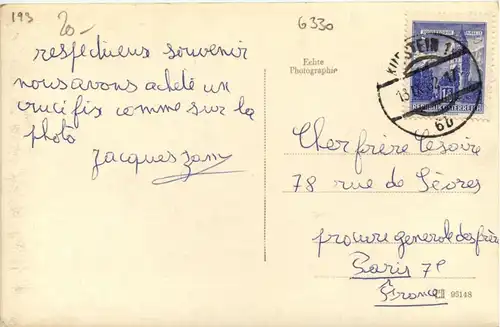 193
20-
6330
respectueux souvenir
nous avons acheté un
crucifix comme sur la
photo
Jacques
Echte
Photographie
KUFSTEIN 1
6b
Cher frère
78 rue de Sèvres
procure generale des frères
Paris 7e
France
96148